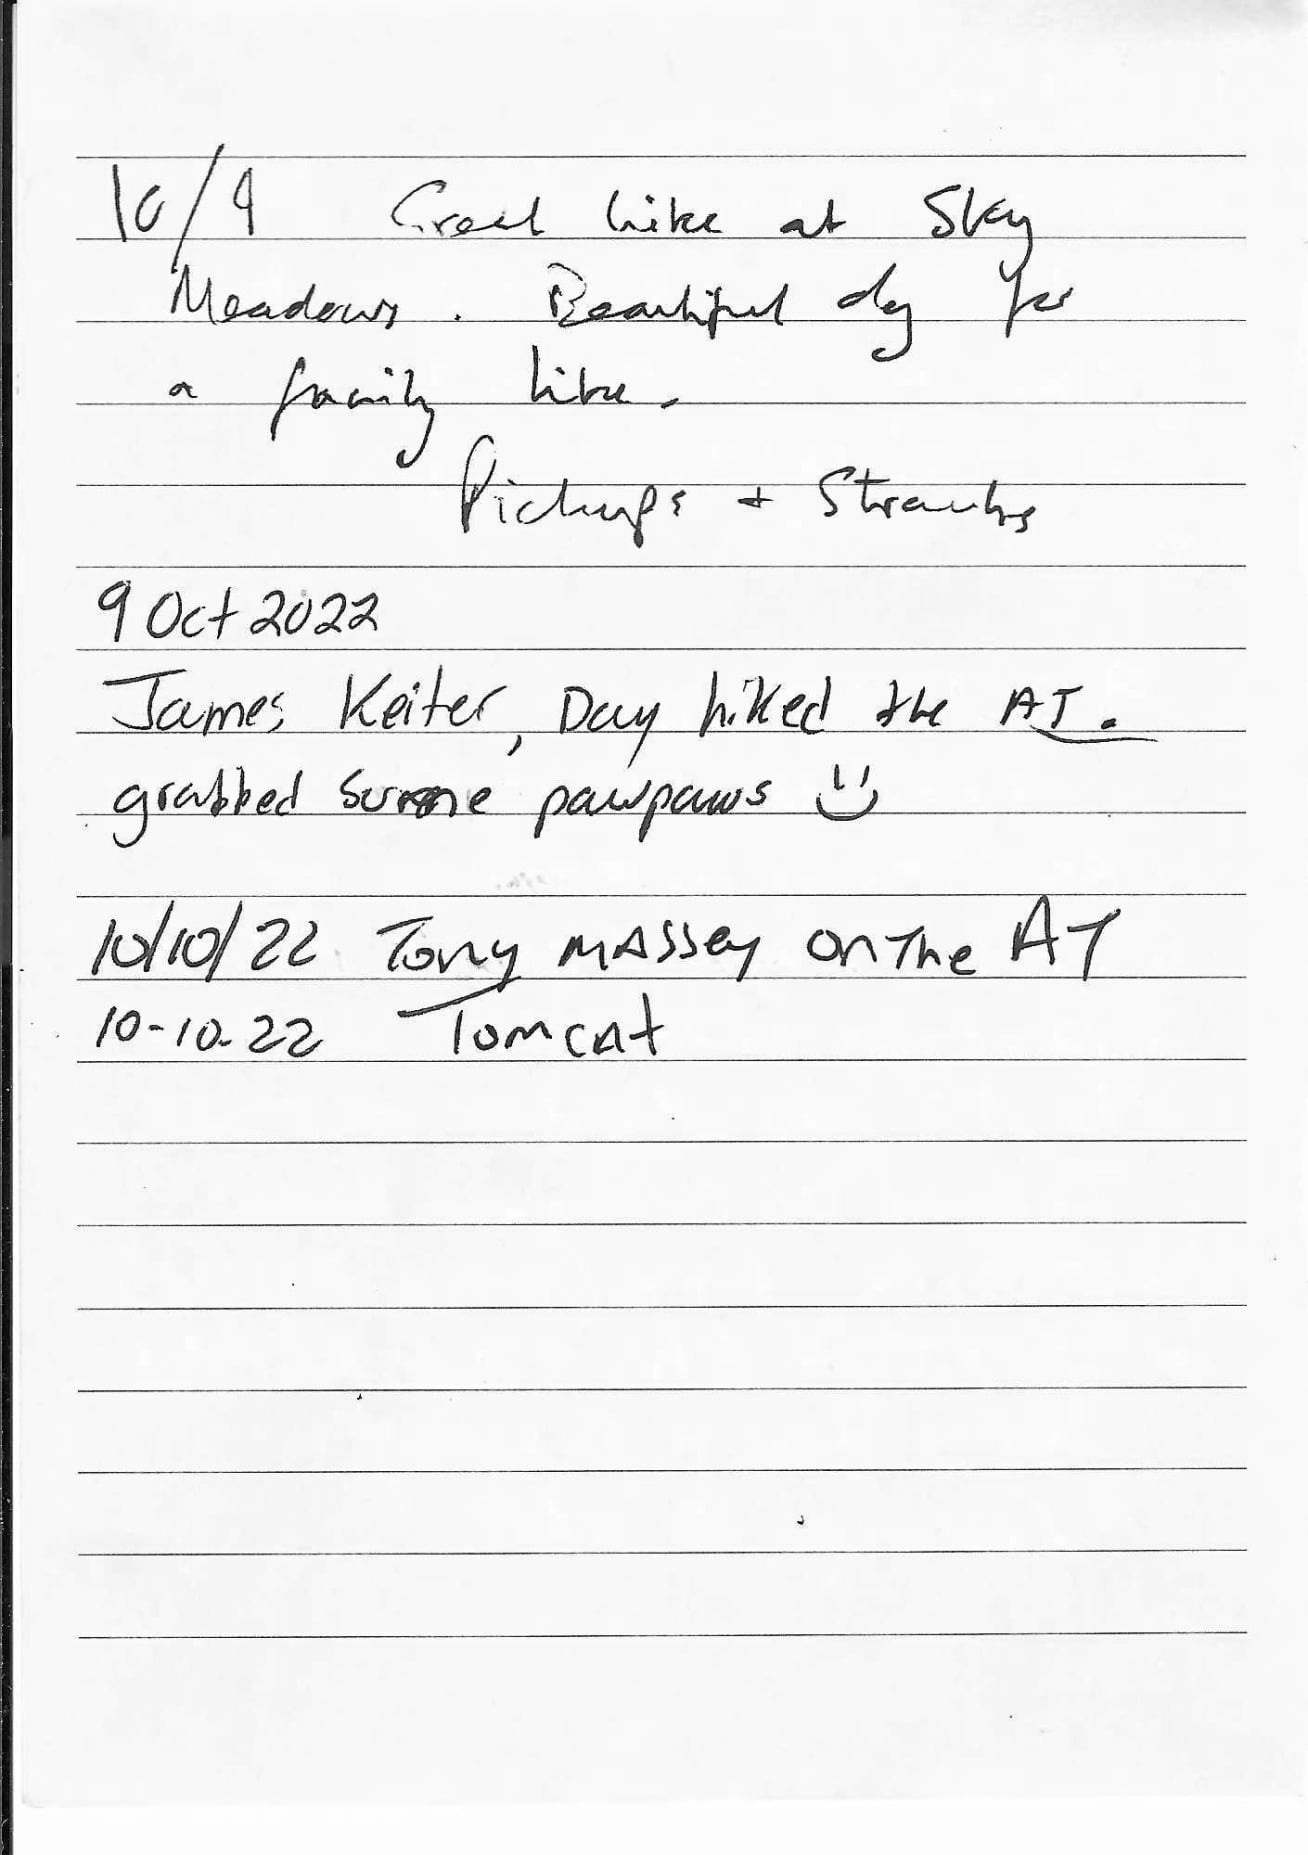 10/9 Great hike at Sky
Meadows. Beautiful day for
a family hike.
Pickups + Straubs
9 Oct 2022
James Keiter, Day hiked the AT.
grabbed some pawpaws :)
10/10/22 Tony MASSey on The AT
10-10-22 Tomcat